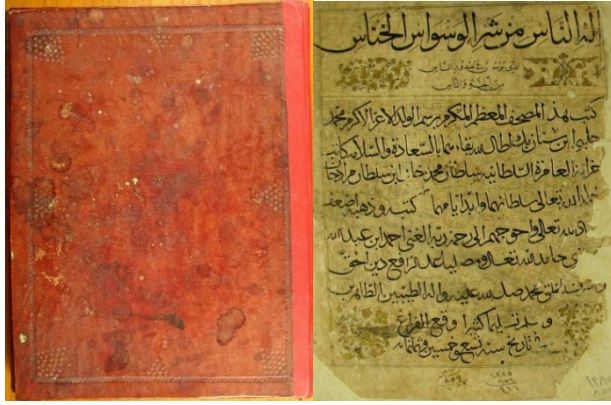 اله الناس من شر الوسواس الخناس
الذي يوسوس في صدور الناس
من الجنة والناس
كتب هذا المصحف المعظم المكرم برسم الولد الاعز الاكرم محمد
جلبي ابن سنان بك اطال الله بقاءهما بالسعادة والسلامة كاتب
خزانة العامرة السلطانية سلطان محمد خان ابن سلطان مراد خان
خلد الله تعالى سلطانهما وابد ايامهما كتبه وذهبه اضعف
عباد الله تعالى واحوجهم الى رحمة ربه الغني احمد بن عبد الله
حامدا لله تعالى ومصليا على رافع دين الحق
محمد صلى الله عليه واله الطيبين الطاهرين
وسلم تسليما كثيرا وقع الفراغ
تاريخ سنة تسع وخمسين وثمانمائه